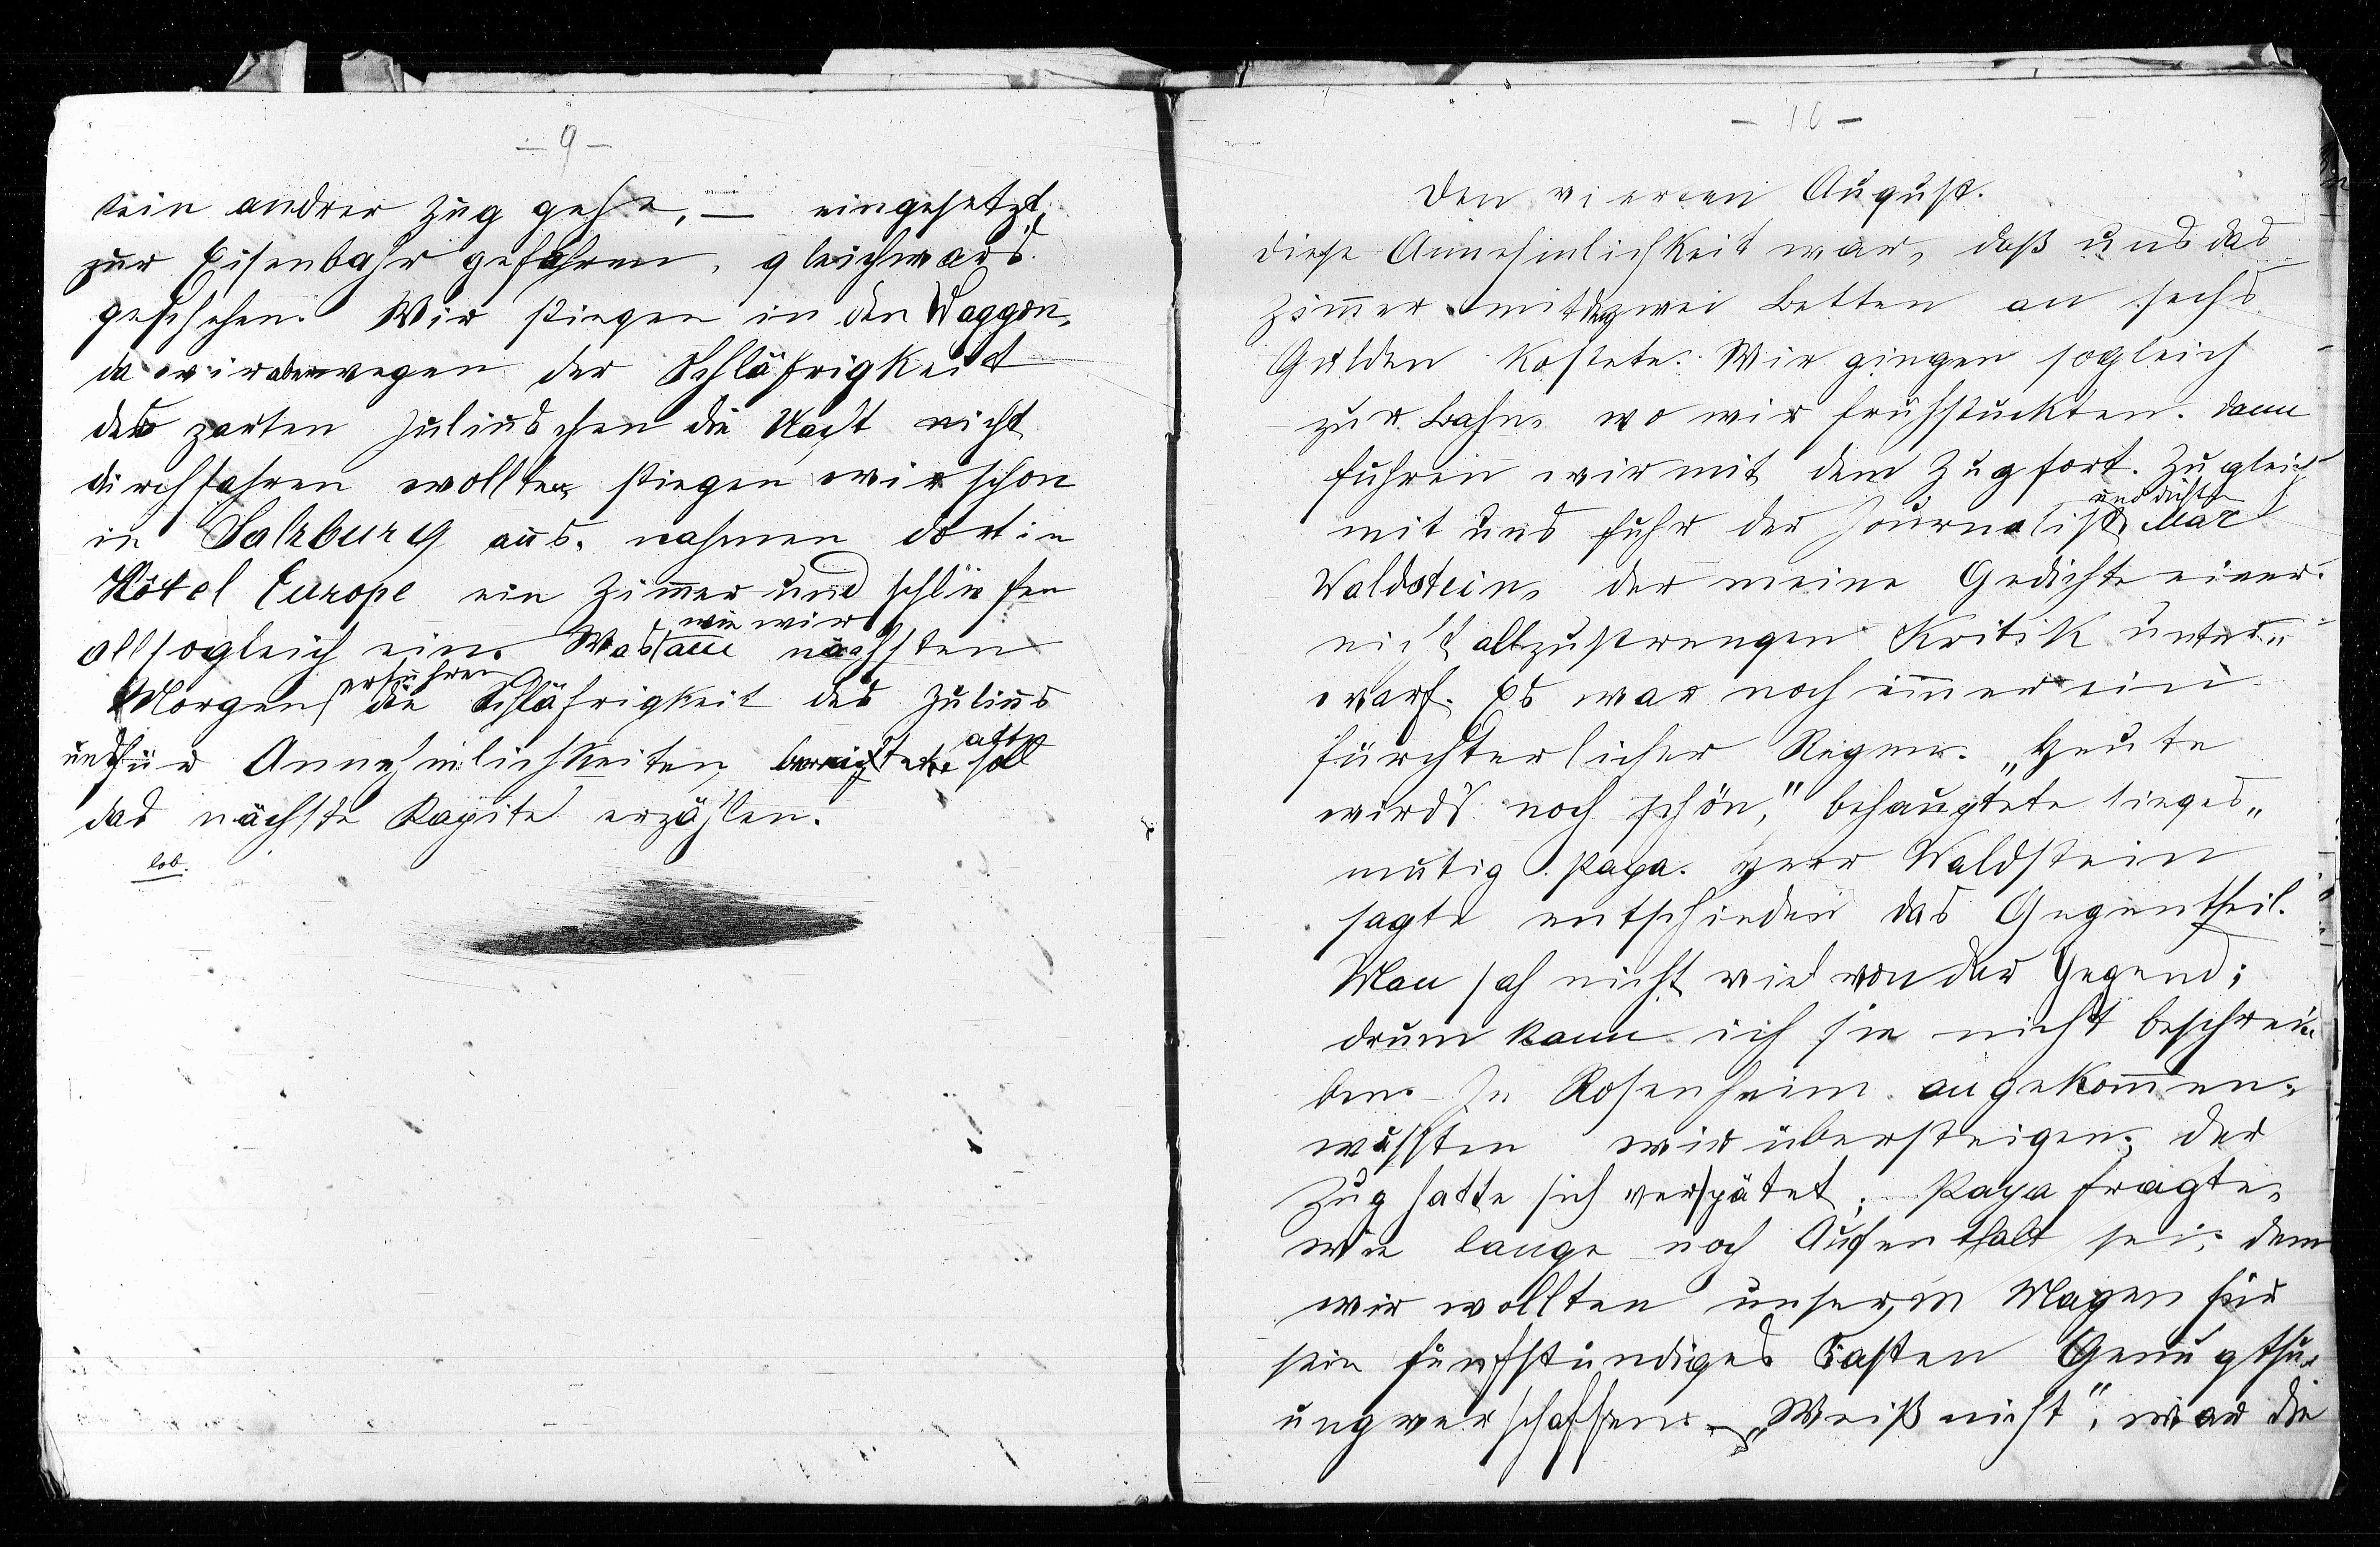 – 9 –
kein andrer Zug gehe, – eingesetzt,
zur Eisenbahn gefahren, gleichwards
geschehen. Wir stiegen in den Waggon,
da wir aber wegen der Schläfrigkeit
des zarten Juliuschen die Nacht nicht
durchfahren wollten, stiegen wir schon
in Salzburg aus, nahmen dort in
Hôtel Europe ein Zimmer und schliefen
allsogleich ein. Was wie wir am nächsten
Morgen erfuhren die Schläfrigkeit des Julius
uns für Annehmlichkeiten bereitet hatte soll
das nächste Kapitel erzählen.
– 10 –
Den vierten August.
Diese Annehmlichkeit war, daß uns das
Zimmer mit den zwei Betten an sechs
Gulden kostete. Wir gingen sogleich
zur Bahn, wo wir frühstückten. Dann
fuhren wir mit dem Zug fort. Zugleich
mit uns fuhr der Journalist und Dichter Max
Waldstein, der meine Gedichte einer
nicht allzustrengen Kritik unter„
warf. Es war noch immer ein
fürchterlicher Regen. „Heute
wird's noch schön," behauptete sieges„
mutig Papa. Herr Waldstein
sagte entschieden das Gegentheil.
Man sah nicht viel von der Gegend;
drum kann ich sie nicht beschrei„
ben. In Rosenheim angekommen,
mussten wir übersteigen; der
Zug hatte sich verspätet; Papa fragte,
wie lange noch Aufenthalt sei; denn
wir wollten unserm Magen für
sein fünfstündiges Fasten Genugthu„
ung verschaffen. – „Weiß nicht", war die